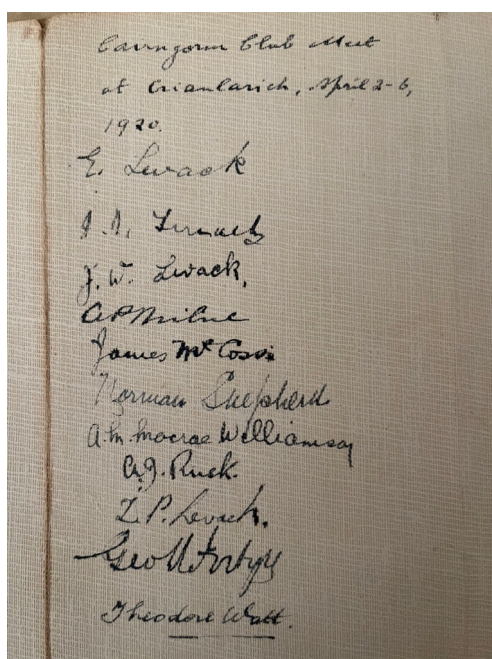 Cairngorm Club Meet
at Crianlarich, April 2-6,
1920.
E. Levack
J. W. Levack,
A P Milne
James McCoss
Norman Shepherd
A. M. Macrae Williamson
A. J. Rusk.
Theodore Watt.